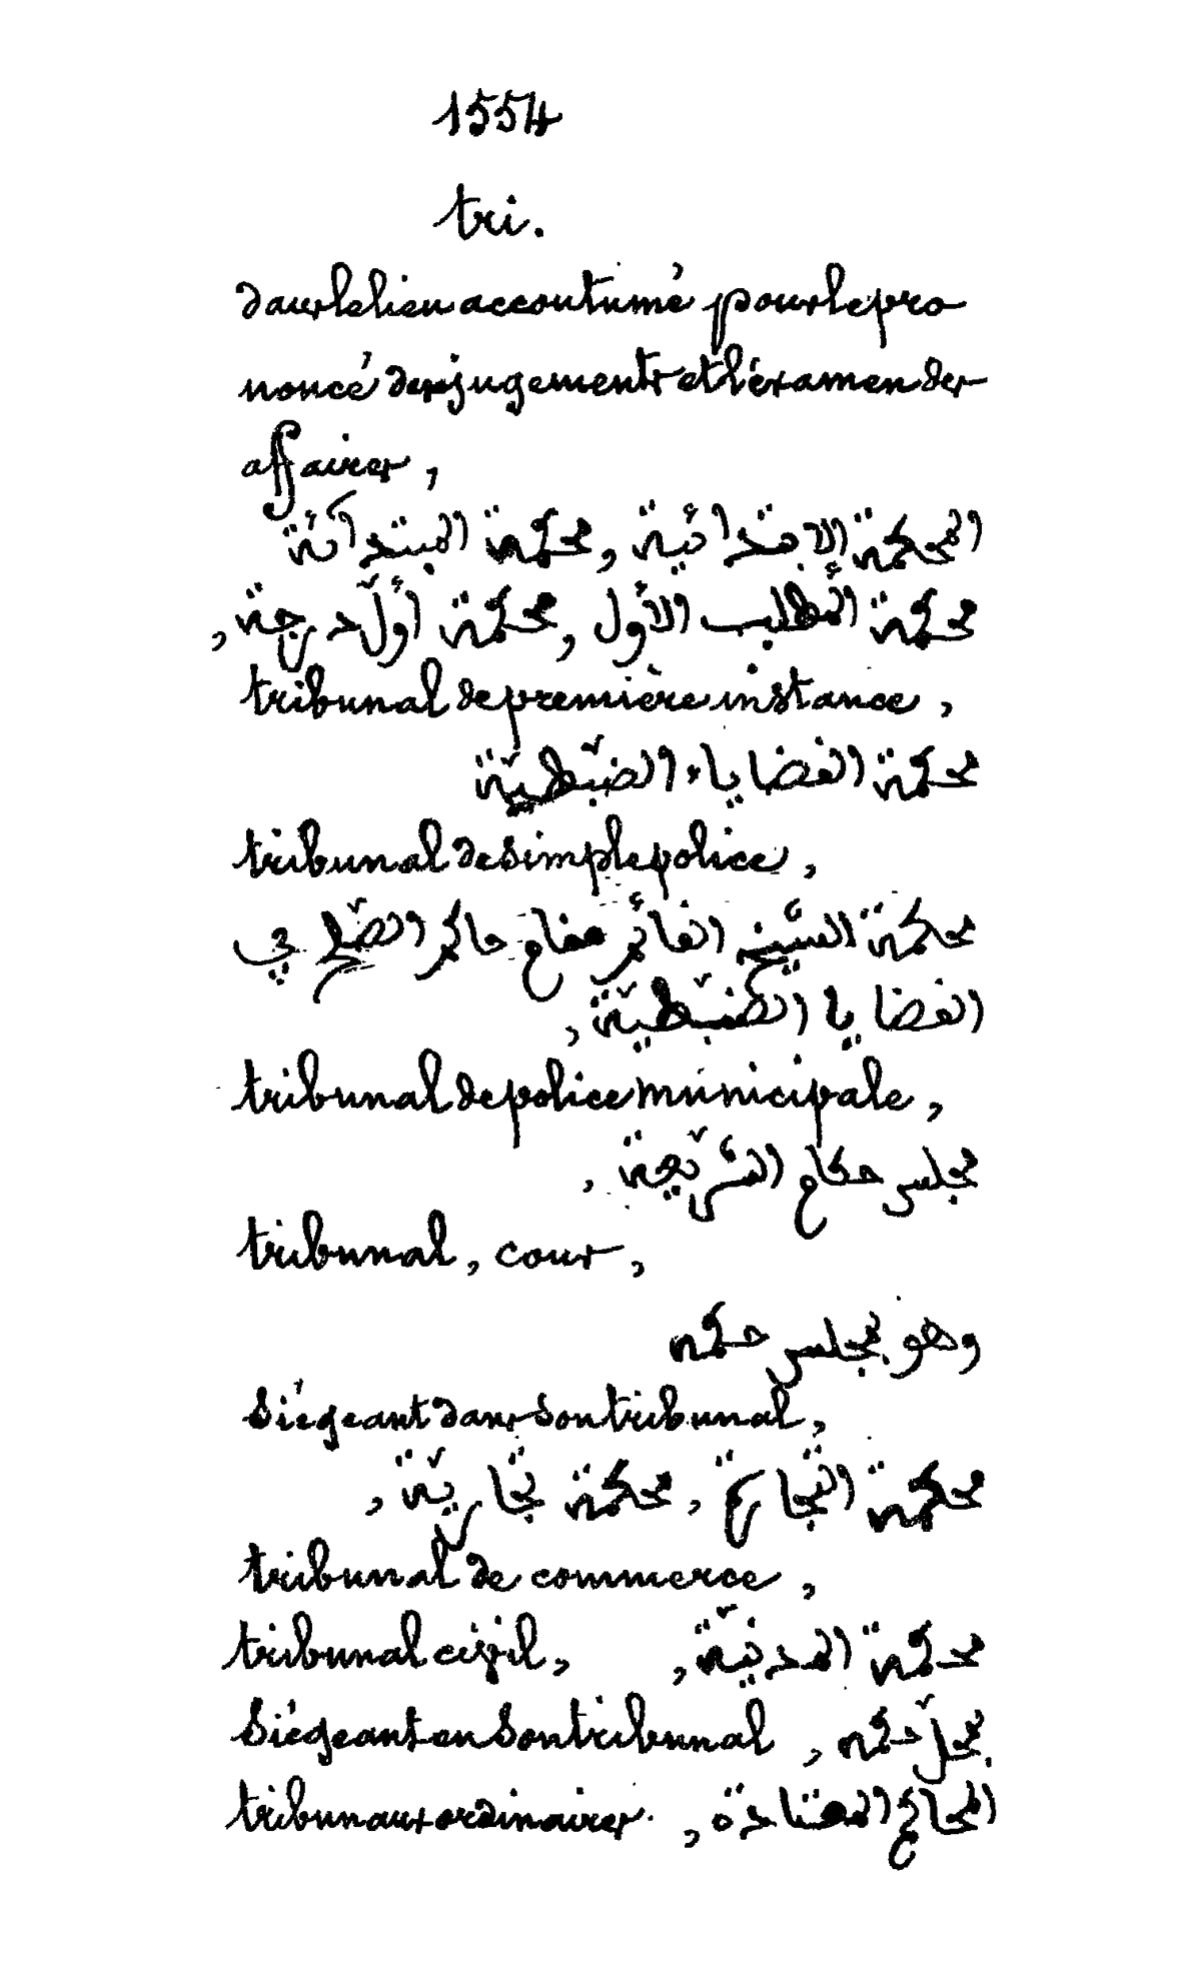 1554
tri.
dans le lieu accoutumé pour le pro
noncé des jugements et l'éxamen des
affaires,
المحكمة الابتدائية, محكمة المبتدآئة
محكمة المطلب الأول, محكمة أول درجة,
tribunal de première instance,
محكمة القضاياء الضبطيّة
tribunal de simple police,
محكمة الشيخ القائم مقام حاكم الصّلح في
القضايا الضّبطيّة,
tribunal de police municipale,
مجلس حكام الشّريعة,
tribunal, cour,
وهو بمجلس حكمه
siégeant dans son tribunal,
محكمة التّجارة, محكمة تجاريّة,
tribunal de commerce,
tribunal civil, محكمة المدنيّة,
siégeant en son tribunal, بمحلّ حكمه
tribunaux ordinaires. المحاكم المعتادة,